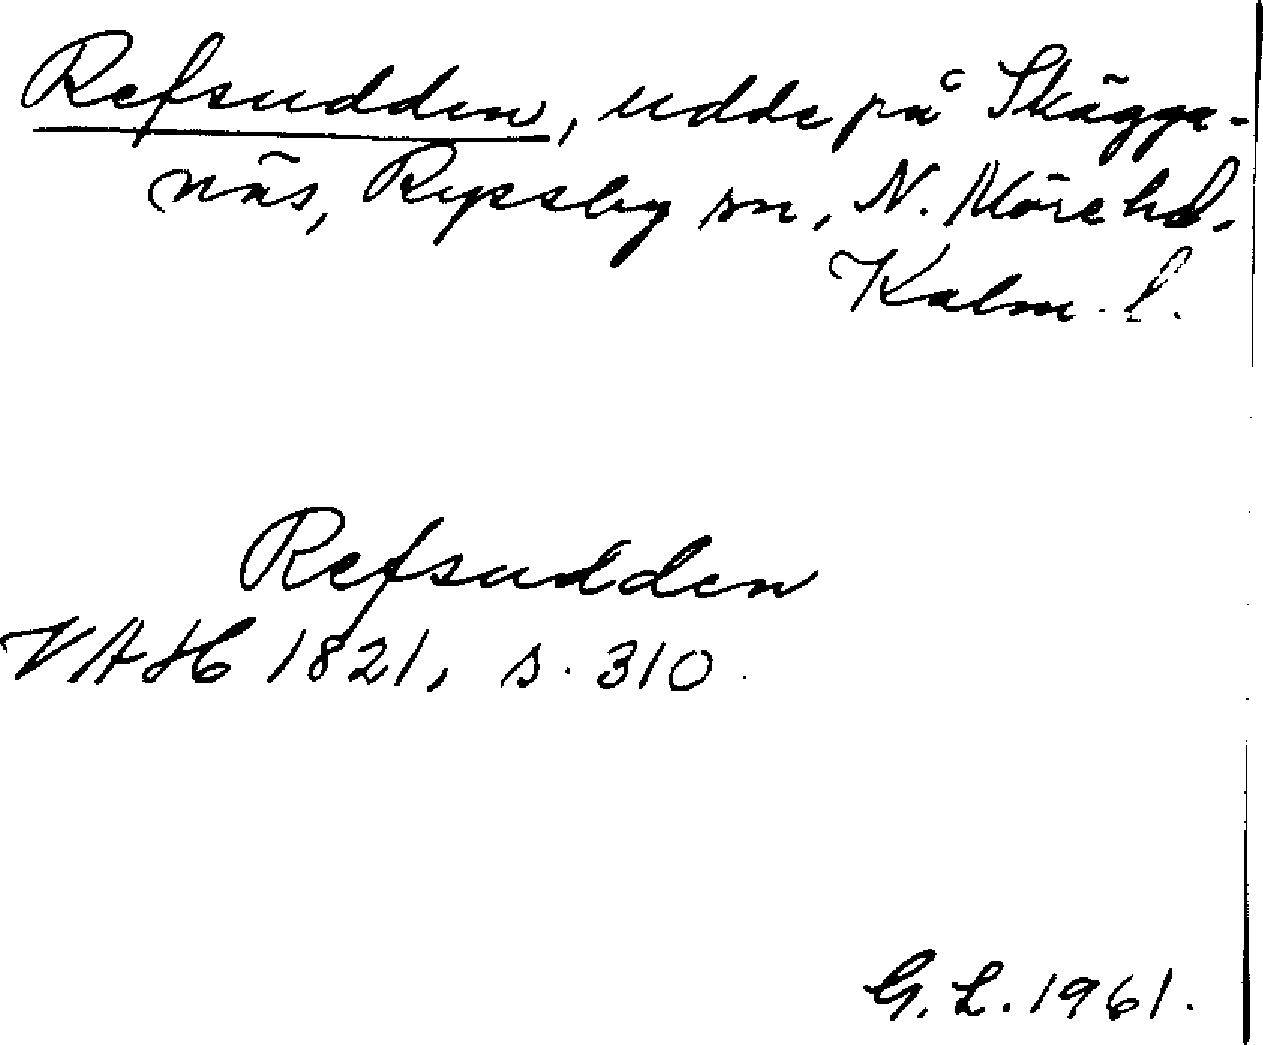 Refsudden, udde på Skägga-
näs, Ryssby sn, N. Möre hd.
Kalm. l.
Refsudden
VAH 1821, s. 310.
G. L. 1961.